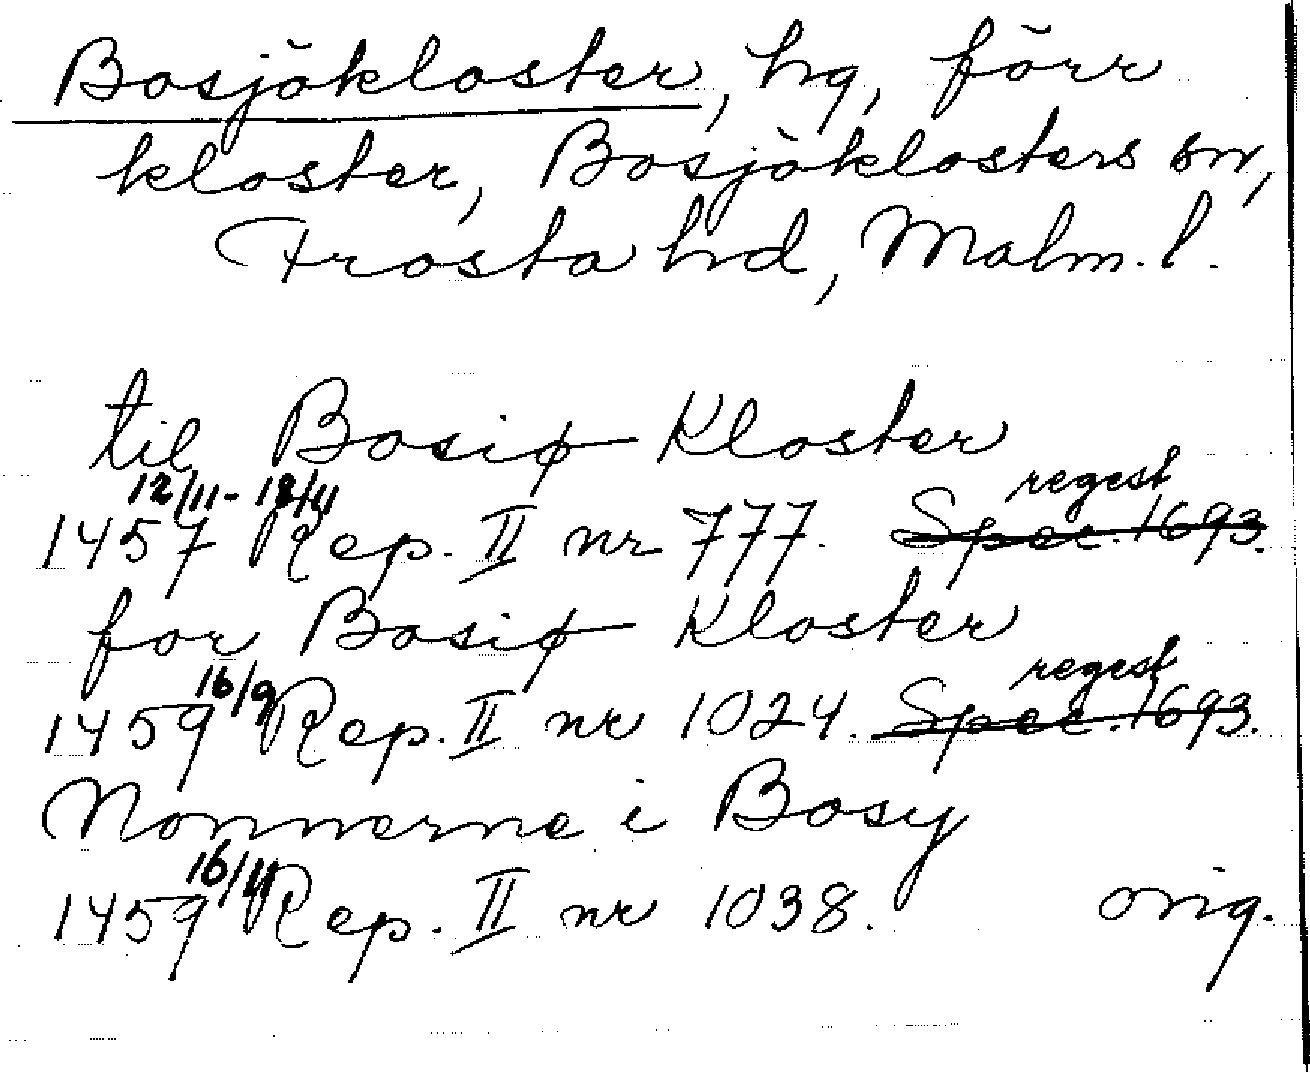 Bosjökloster, hg, förr
kloster, Bosjöklosters sn,
Frosta hd, Malm. l.
til Bosiø Kloster
12/11 - 18/11 regest
1457 Rep. II nr 777. Spec. 1693.
for Bosiø Kloster
16/9 regest
1459 Rep. II nr 1024. Spec. 1693.
Nonnerne i Bosy
16/11
1459 Rep. II nr 1038. orig.